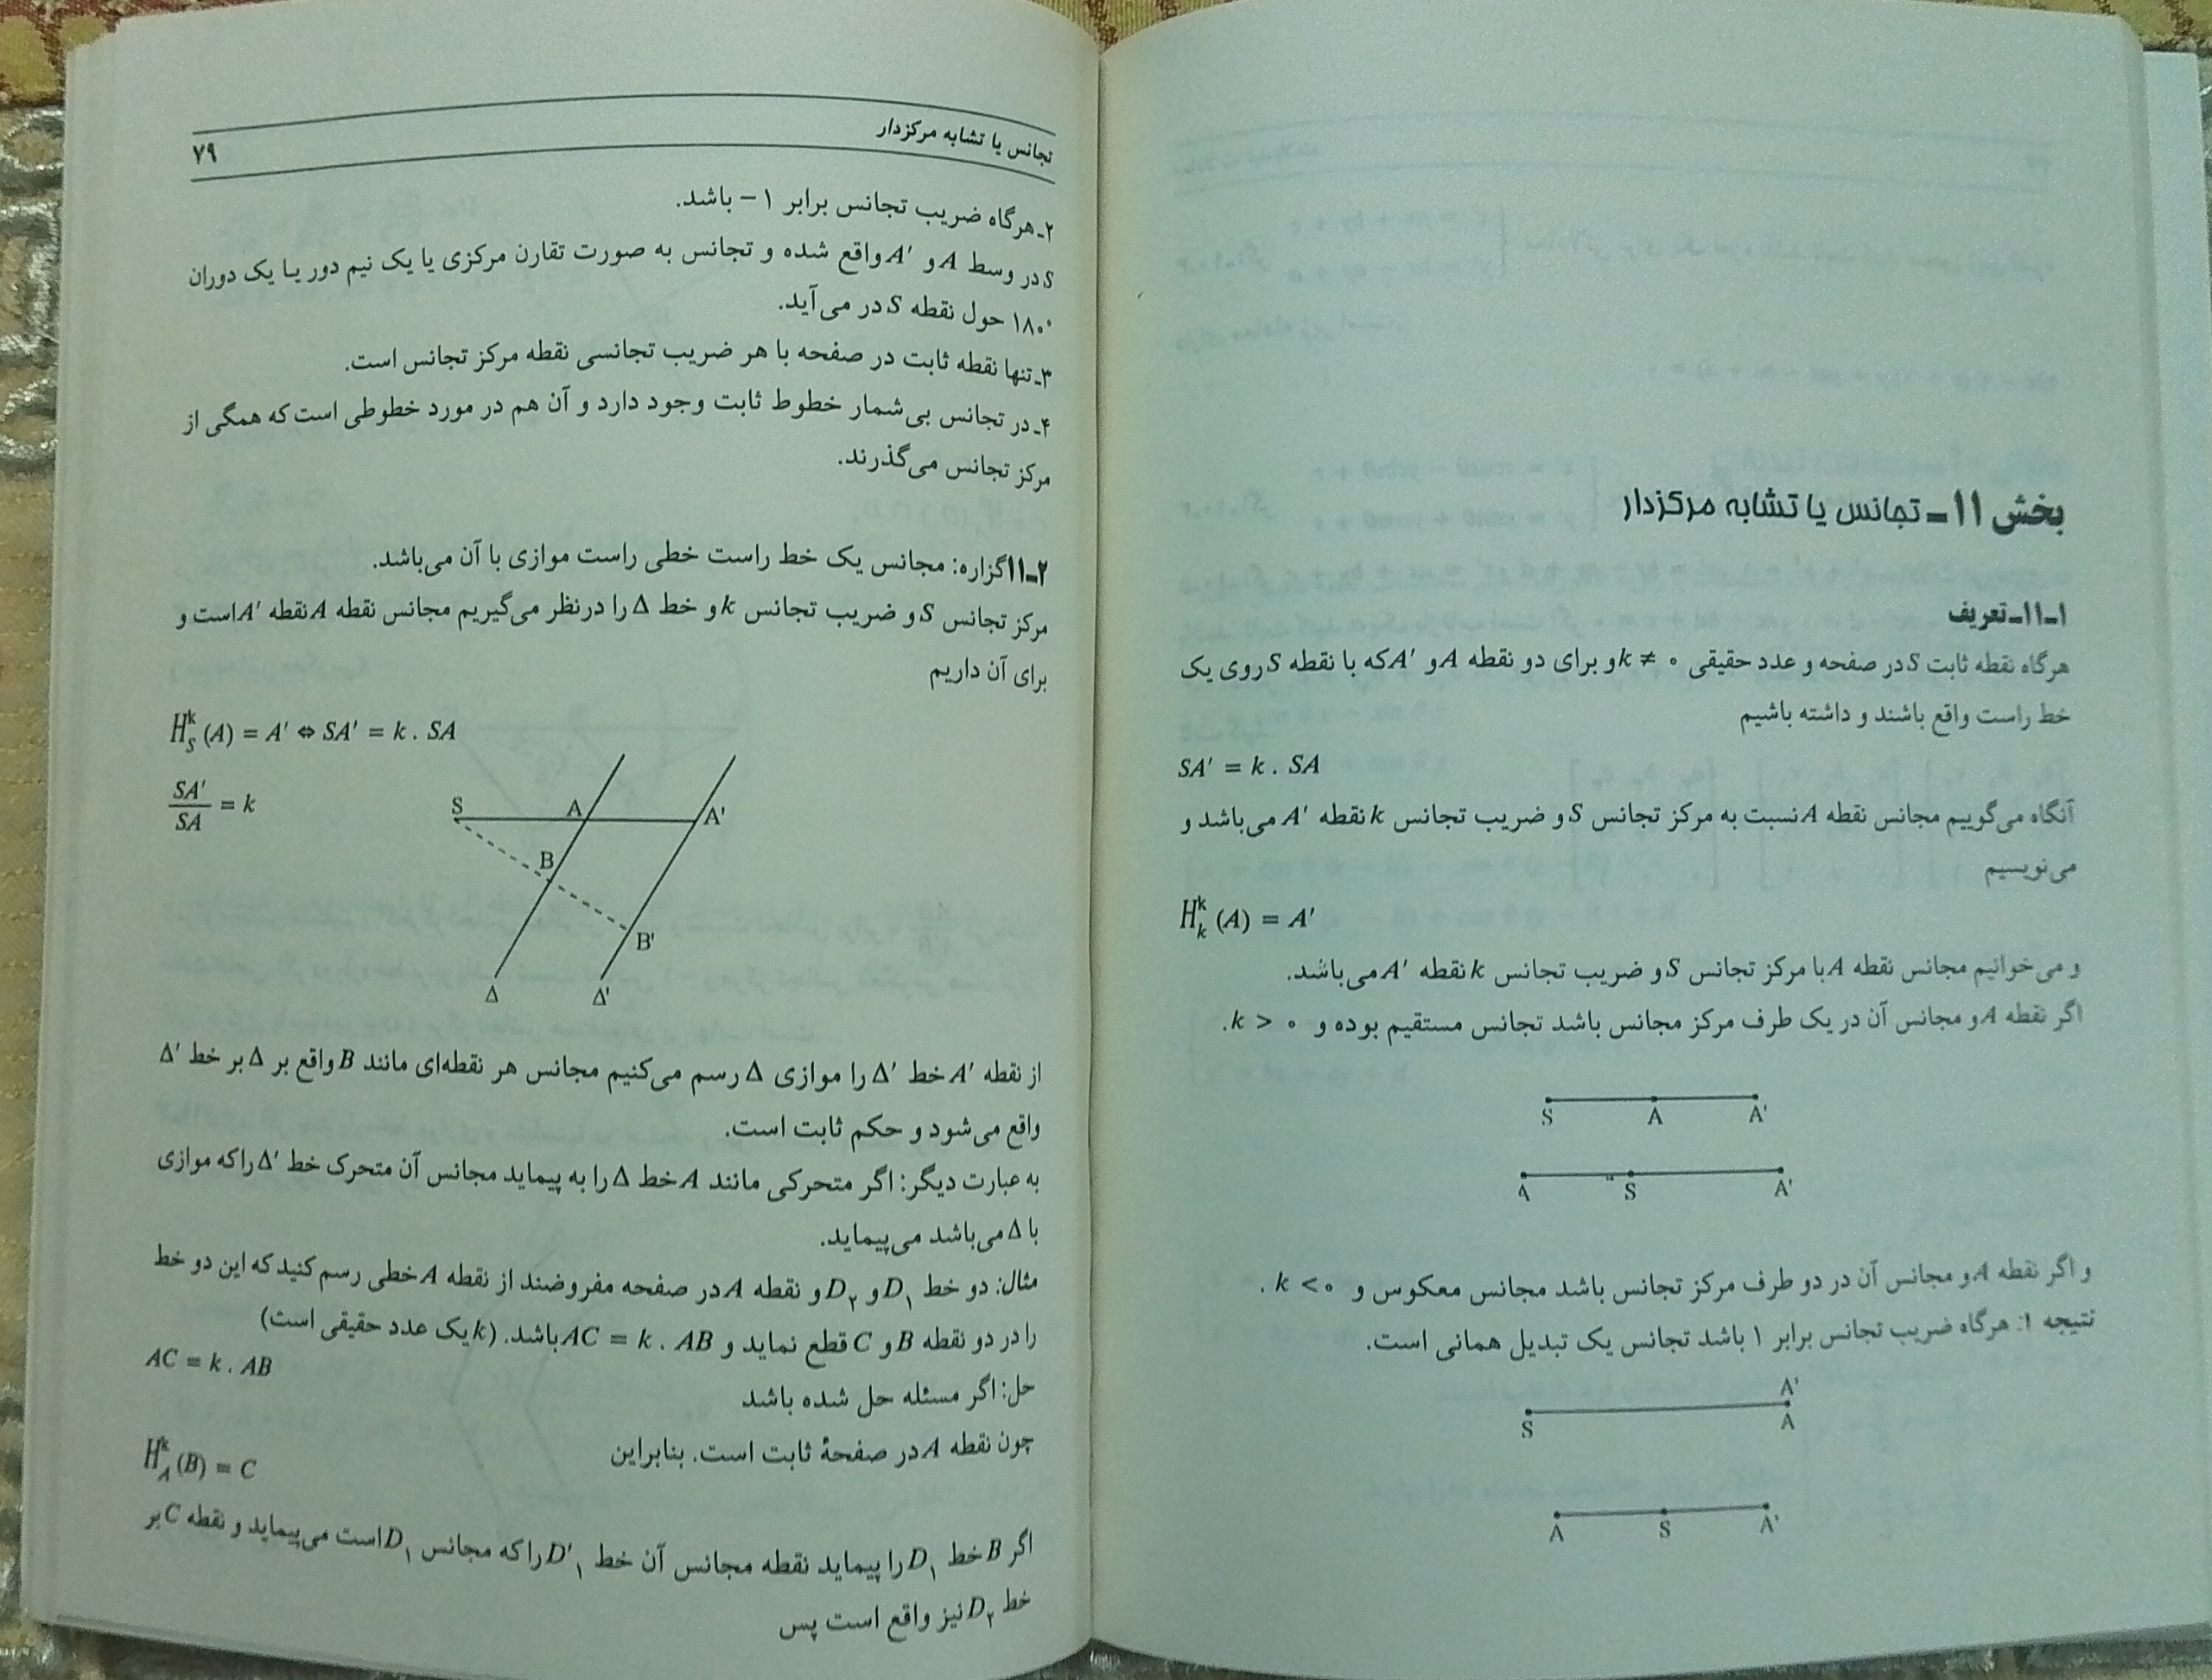 بخش ۱۱ـ تجانس یا تشابه مرکزدار
۱ـ۱۱ـ تعریف
هرگاه نقطه ثابت S در صفحه و عدد حقیقی k ≠ ۰ و برای دو نقطه A و A' که با نقطه S روی یک
خط راست واقع باشند و داشته باشیم
SA' = k . SA
آنگاه می‌گوییم مجانس نقطه A نسبت به مرکز تجانس S و ضریب تجانس k نقطه A' می‌باشد و
می‌نویسیم
H_k^k (A) = A'
و می‌خوانیم مجانس نقطه A با مرکز تجانس S و ضریب تجانس k نقطه A' می‌باشد.
اگر نقطه A و مجانس آن در یک طرف مرکز مجانس باشد تجانس مستقیم بوده و k > ۰.
S A A'
A S A'
و اگر نقطه A و مجانس آن در دو طرف مرکز تجانس باشد مجانس معکوس و k < ۰ .
نتیجه ۱: هرگاه ضریب تجانس برابر ۱ باشد تجانس یک تبدیل همانی است.
A'
S A
A S A'
تجانس یا تشابه مرکزدار ۷۹
۲ـ هرگاه ضریب تجانس برابر ۱ − باشد.
S در وسط A و A' واقع شده و تجانس به صورت تقارن مرکزی یا یک نیم دور یا یک دوران
۱۸۰° حول نقطه S در می‌آید.
۳ـ تنها نقطه ثابت در صفحه با هر ضریب تجانسی نقطه مرکز تجانس است.
۴ـ در تجانس بی‌شمار خطوط ثابت وجود دارد و آن هم در مورد خطوطی است که همگی از
مرکز تجانس می‌گذرند.
۲ـ۱۱ گزاره: مجانس یک خط راست خطی راست موازی با آن می‌باشد.
مرکز تجانس S و ضریب تجانس k و خط Δ را درنظر می‌گیریم مجانس نقطه A نقطه A' است و
برای آن داریم
H_S^k (A) = A' ⇔ SA' = k . SA
SA'/SA = k
S A A'
B
B'
Δ Δ'
از نقطه A' خط Δ' را موازی Δ رسم می‌کنیم مجانس هر نقطه‌ای مانند B واقع بر Δ بر خط Δ'
واقع می‌شود و حکم ثابت است.
به عبارت دیگر: اگر متحرکی مانند A خط Δ را به پیماید مجانس آن متحرک خط Δ' را که موازی
با Δ می‌باشد می‌پیماید.
مثال: دو خط D₁ و D₂ و نقطه A در صفحه مفروضند از نقطه A خطی رسم کنید که این دو خط
را در دو نقطه B و C قطع نماید و AC = k . AB باشد. (k یک عدد حقیقی است)
AC = k . AB
حل: اگر مسئله حل شده باشد
چون نقطه A در صفحهٔ ثابت است. بنابراین
H_A^k (B) = C
اگر B خط D₁ را پیماید نقطه مجانس آن خط D'₁ را که مجانس D₁ است می‌پیماید و نقطه C بر
خط D₂ نیز واقع است پس